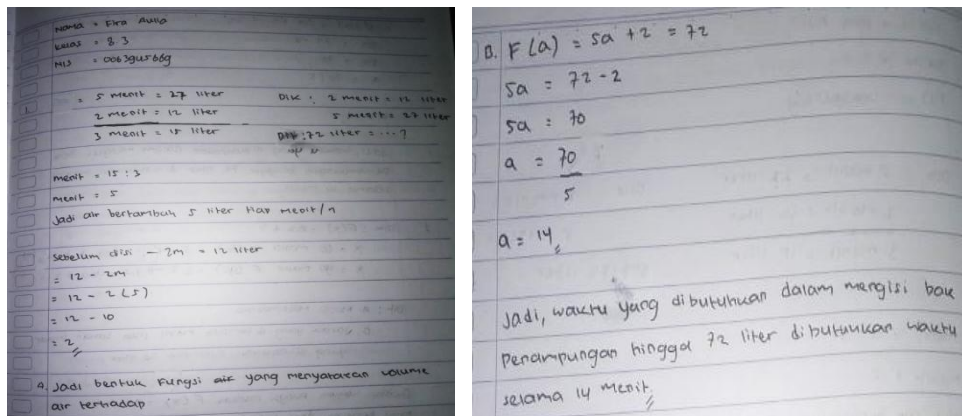 Nama = Fira Aulia
Kelas = 8.3
NIS =
1. = 5 menit = 27 liter Dik : 2 menit = 12 liter
2 menit = 12 liter 5 menit = 27 liter
3 menit = 15 liter Dit : 72 liter = ... ?
menit = 15 : 3
menit = 5
Jadi air bertambah 5 liter tiap menit/
sebelum diisi - 2m = 12 liter
= 12 - 2m
= 12 - 2 (5)
= 12 - 10
= 2
A. Jadi bentuk Fungsi air yang menyatakan volume
air terhadap
B. F(a) = 5a + 2 = 72
5a = 72 - 2
5a = 70
a = 70
5
a = 14
Jadi, waktu yang dibutuhkan dalam mengisi bak
penampungan hingga 72 liter dibutuhkan waktu
selama 14 menit